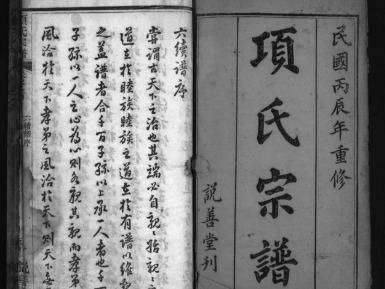 民國丙辰年重修
項氏宗譜
說善堂刊
六續譜序
嘗謂古天下之治也其端必自親親始親
道立於睦族睦族之道在於有譜以維
之蓋譜者合千百子孫以上承一人者也千
子孫以一人之心為心則各親其親而孝弟
風洽於天下孝弟之風洽於天下則天下